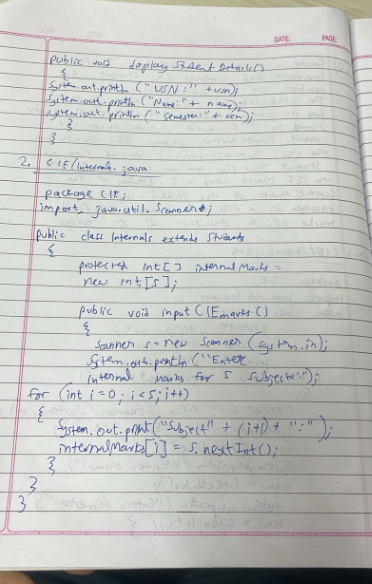 DATE: PAGE:
public void display Student Details()
{
System.out.println ("USN:" +usn);
System.out.println ("Name:" + name);
System.out.println ("Semester:" + sem);
}
}
2. CIE/Internals.java
package CIE;
import java.util.Scanner;
public class Internals extends Students
{
protected int[] internalMarks =
new int[5];
public void input CIEmarks()
{
Scanner s = new Scanner (System.in);
System.out.println ("Enter
Internal Marks for 5 Subjects:");
for (int i=0; i<5; i++)
{
System.out.print("Subject" + (i+1) + ":");
internalMarks[i] = s.nextInt();
}
}
}